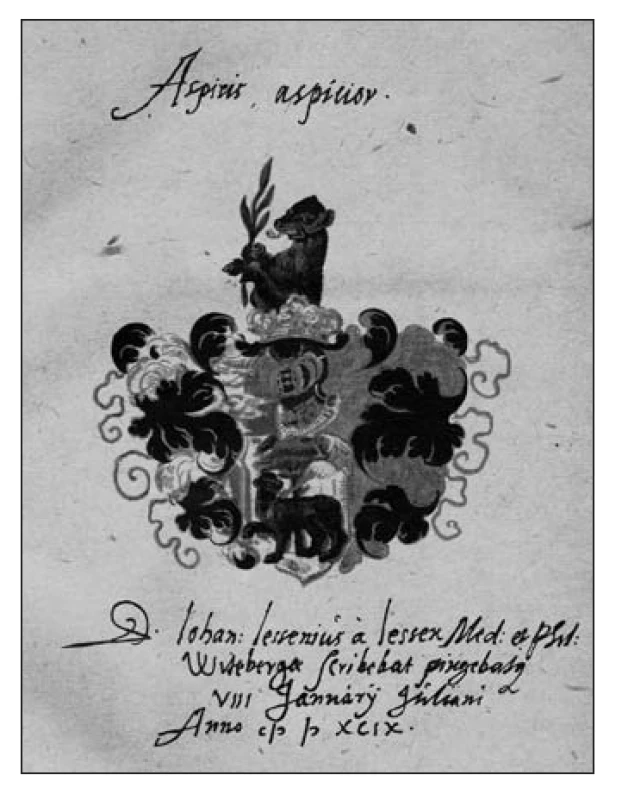 Aspicis, aspicior.
D. Iohan: Iessenius à Iessen Med: et Phil:
Witebergæ scribebat pingebatq
VIII Januarij Juliani
Anno cIɔ Iɔ XCIX.